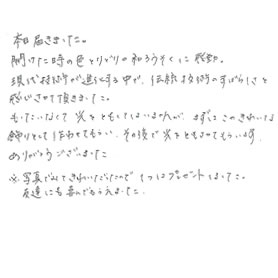 本日届きました。
開けた時の色とりどりの和ろうそくに感動。
現代技術が進化する中で、伝統技術のすばらしさを
感じさせて頂きました。
もったいなくて火をともしてはいませんが、まずはこのきれいな
飾りとして使わせてもらい、その後で火をともさせてもらいます。
ありがとうございました
※写真でみてきれいだったので 1つはプレゼントしました。
友達にも喜んでもらえました。